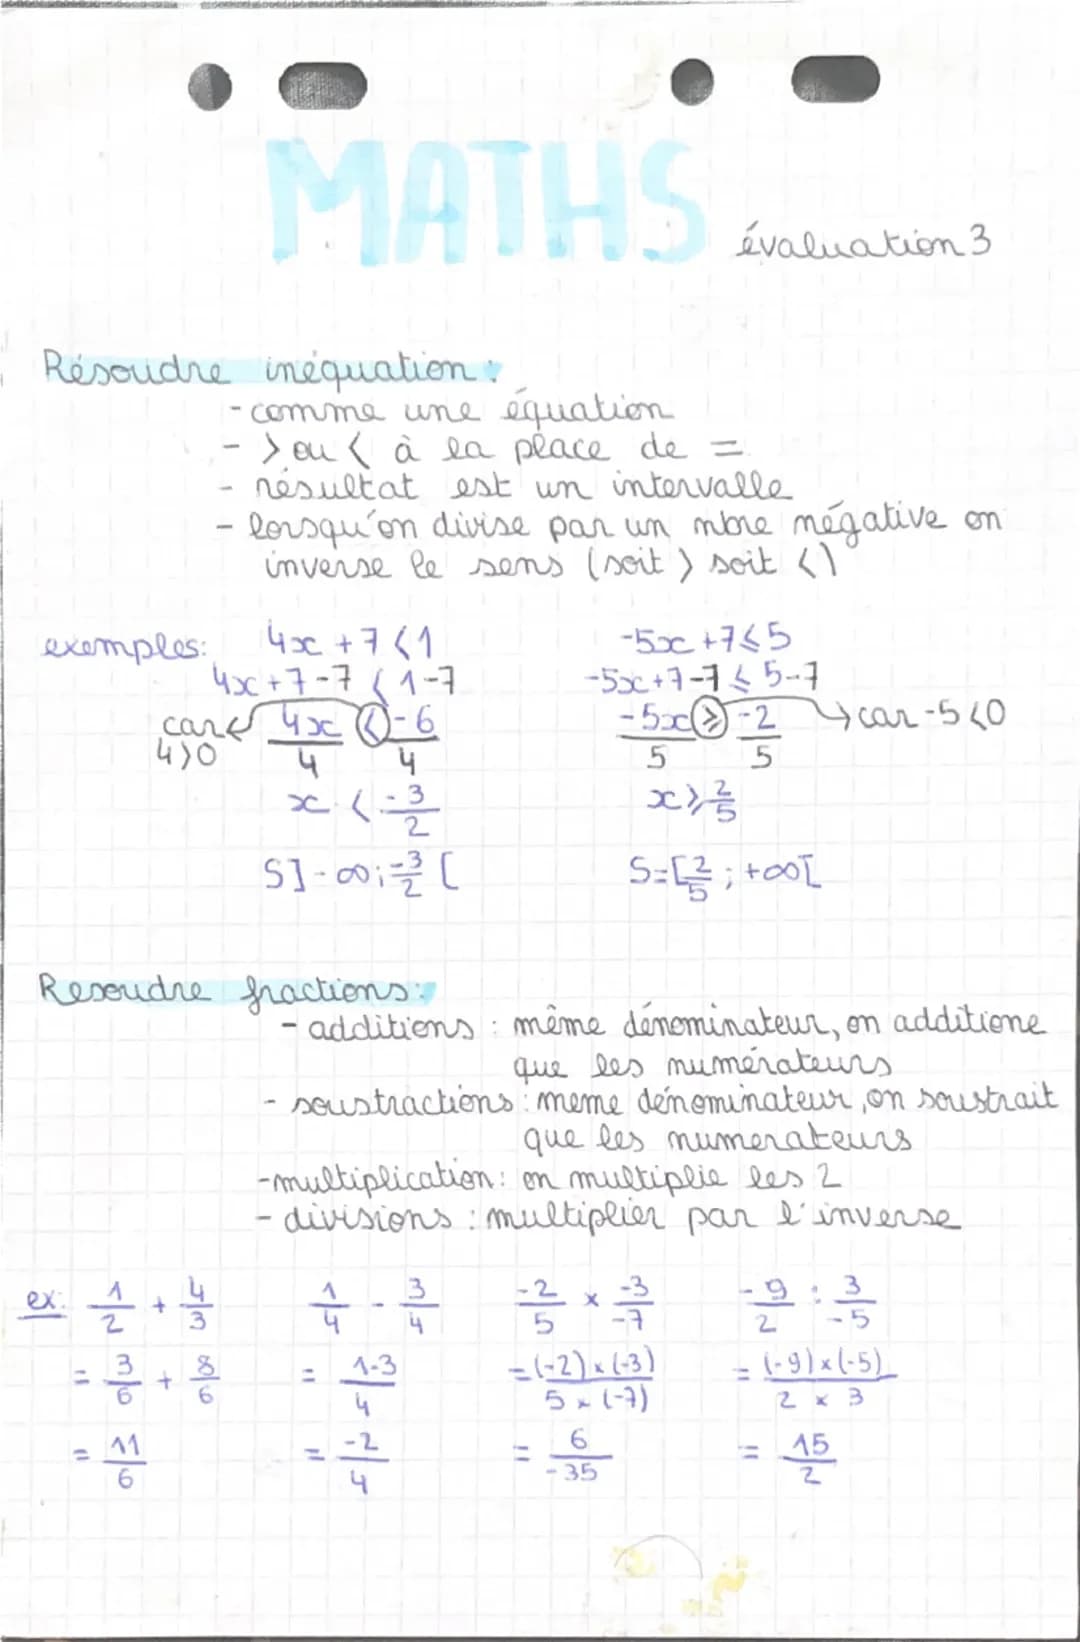 MATHS
évaluation 3
Résoudre inéquation :
- comme une équation
- > ou < à la place de =
- résultat est un intervalle
- lorsqu'on divise par un nbre négative on
inverse le sens (soit > soit <)
exemples: 4x + 7 < 1
4x + 7 - 7 < 1 - 7
car 4 > 0
4x/4 < -6/4
x < -3/2
S]-∞; -3/2 [
-5x + 7 ⩽ 5
-5x + 7 - 7 ⩽ 5 - 7
-5x/5 ⩾ -2/5 → car -5 < 0
x ⩾ 2/5
S = [2/5 ; +∞[
Resoudre fractions :
- additions : même dénominateur, on additione
que les numérateurs
- soustractions : meme dénominateur, on soustrait
que les numerateurs
- multiplication : on multiplie les 2
- divisions : multiplier par l'inverse
ex: 1/2 + 4/3
= 3/6 + 8/6
= 11/6
1/4 - 3/4
= 1-3/4
= -2/4
-2/5 × -3/-7
= (-2) × (-3)/5 × (-7)
= 6/-35
-9/2 : 3/-5
= (-9) × (-5)/2 × 3
= 15/2